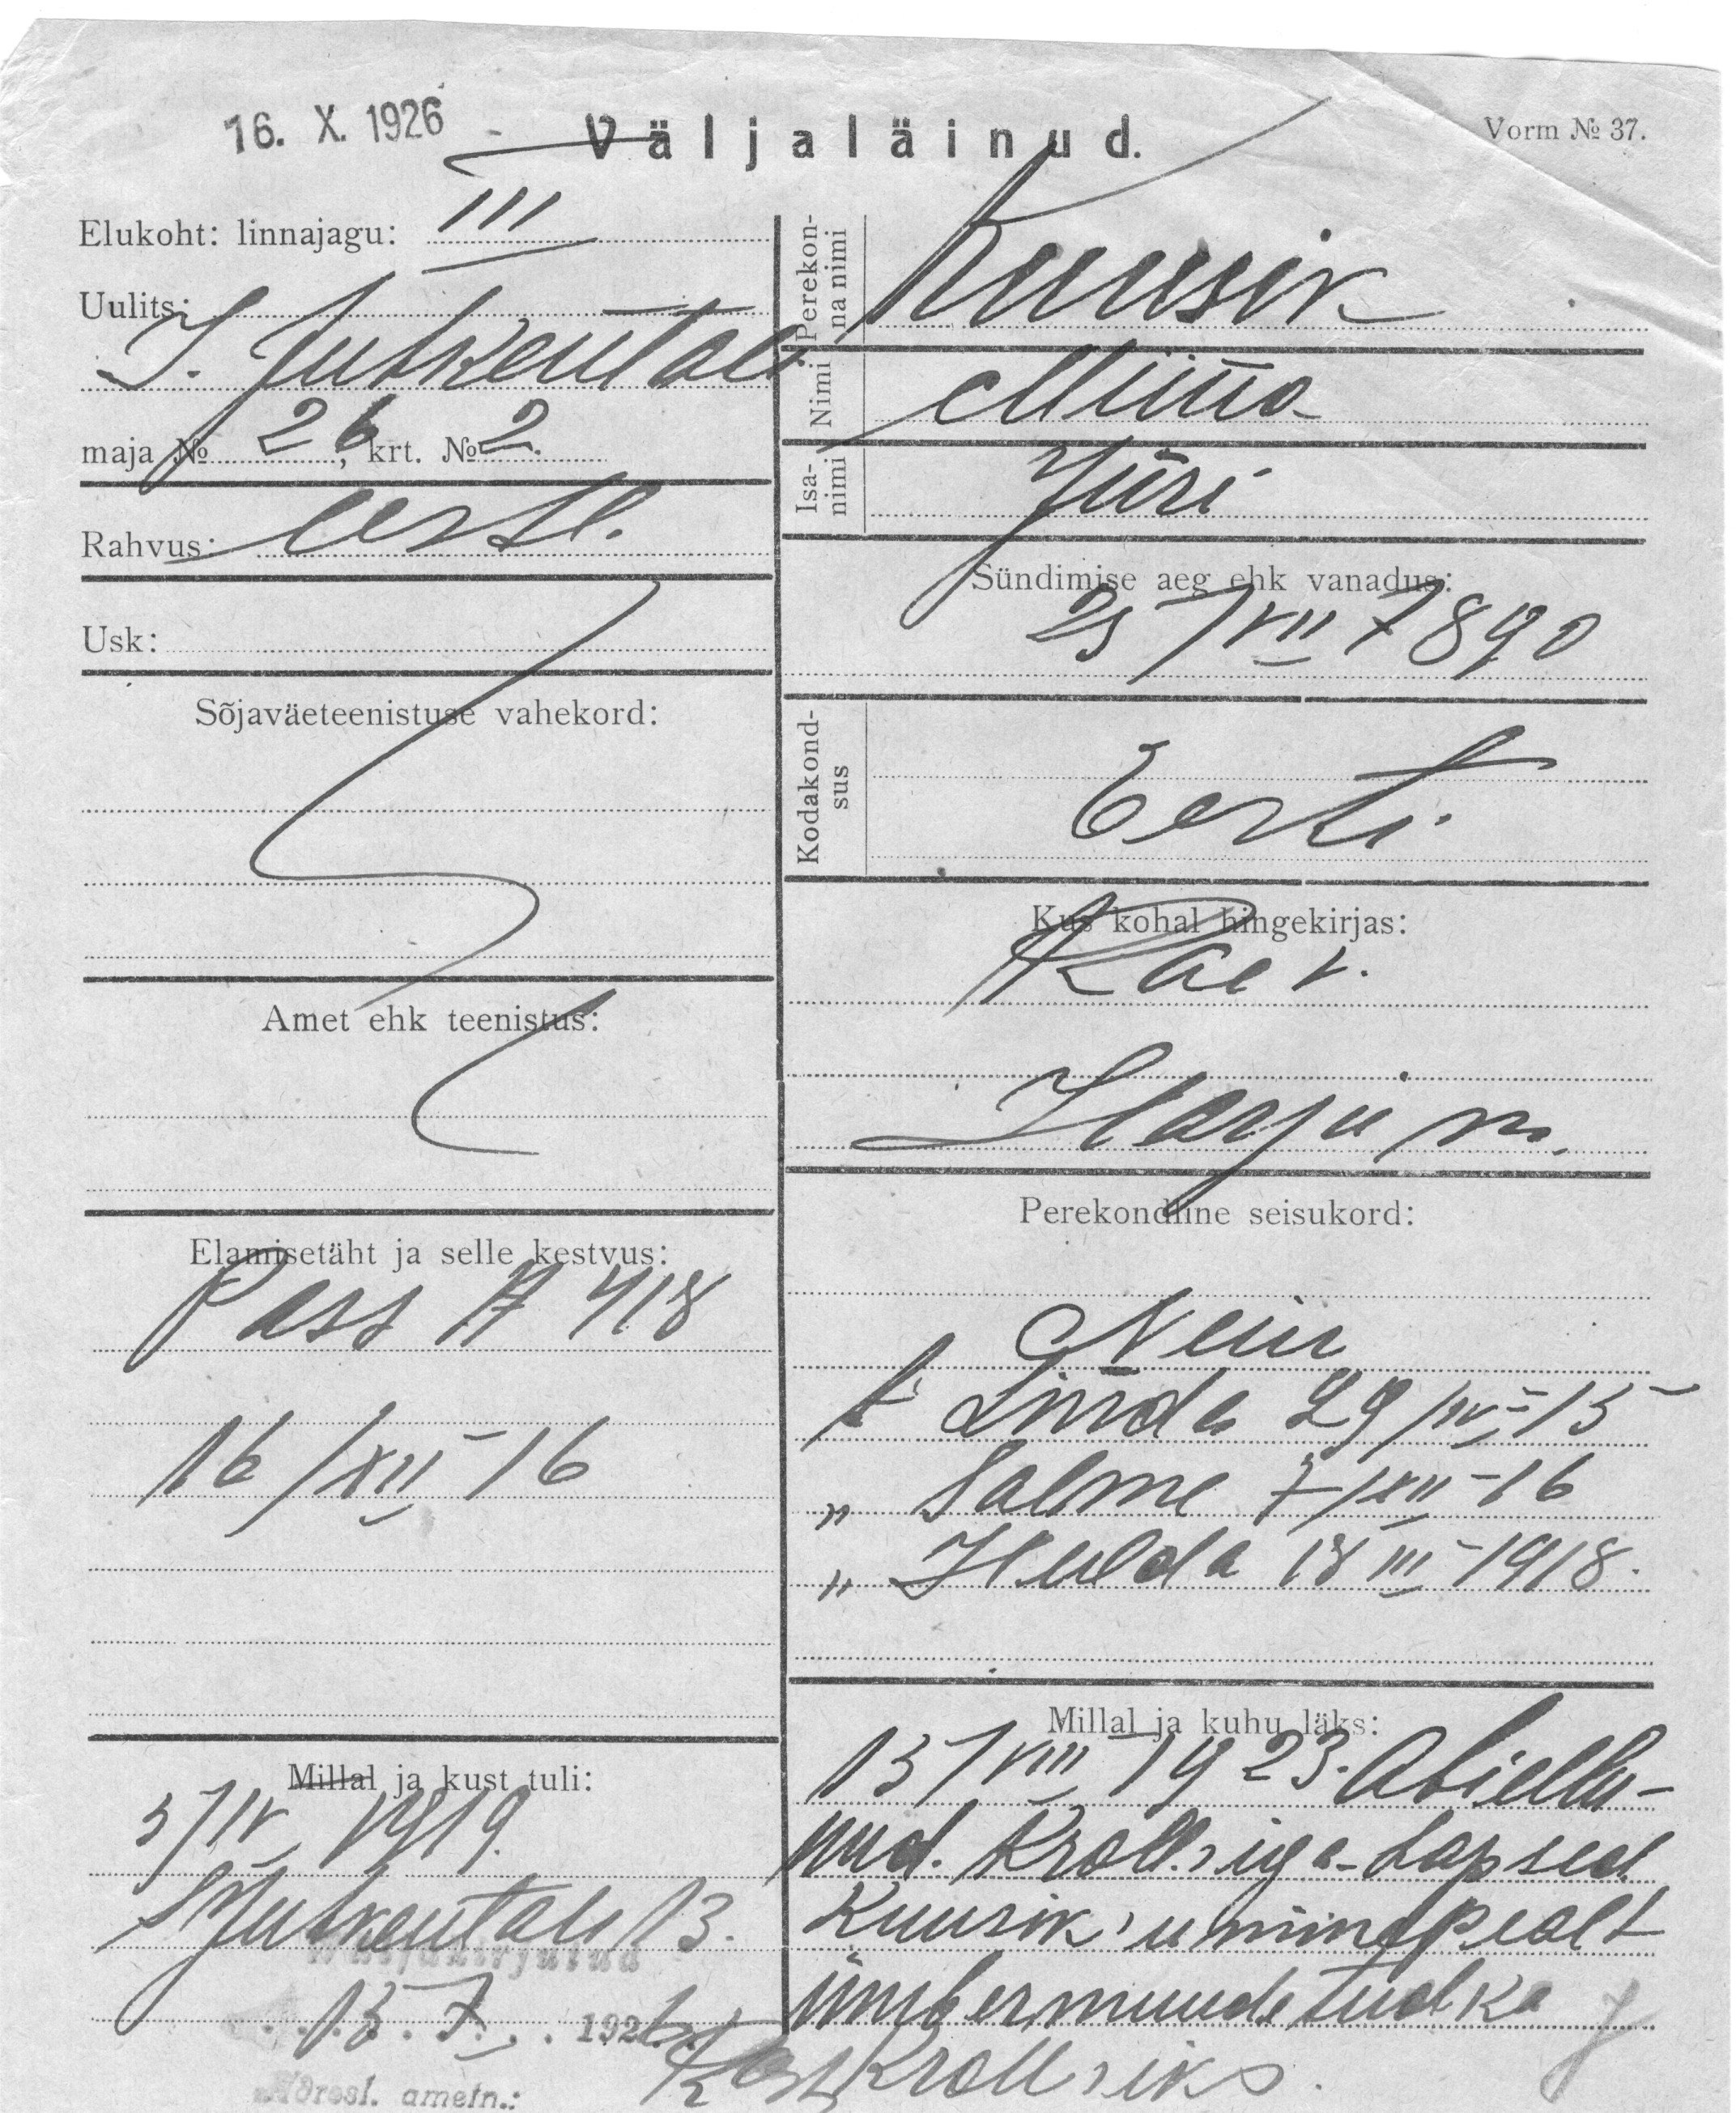 16. X. 1926
Väljaläinud.
Vorm № 37.
Elukoht: linnajagu: III
Uulits:
maja № 26, krt. № 2.
Rahvus: eestl.
Usk:
Sõjaväeteenistuse vahekord:
Amet ehk teenistus:
Elamisetäht ja selle kestvus:
Pass A 418
16/XII-16
Millal ja kust tuli:
5/IV 1919.
13.
Väljakirjutud
1926
Adresl. ametn.:
Perekonna nimi Kuusik
Nimi Miina
Isanimi Jüri
Sündimise aeg ehk vanadus:
25/VII 1890
Kodakondsus
Eesti.
Kus kohal hingekirjas:
Rae v.
Harju m.
Perekondline seisukord:
Neiu
t. Linda 29/IV-15
„ Salme 7/XII-16
„ Hulda 18 III-1918.
Millal ja kuhu läks:
13/VIII 1923. Abiellu-
nud. Kroll'iga. Lapsed
Kuusik'u nime pealt
ümbermuudetud ka
Kroll'iks.